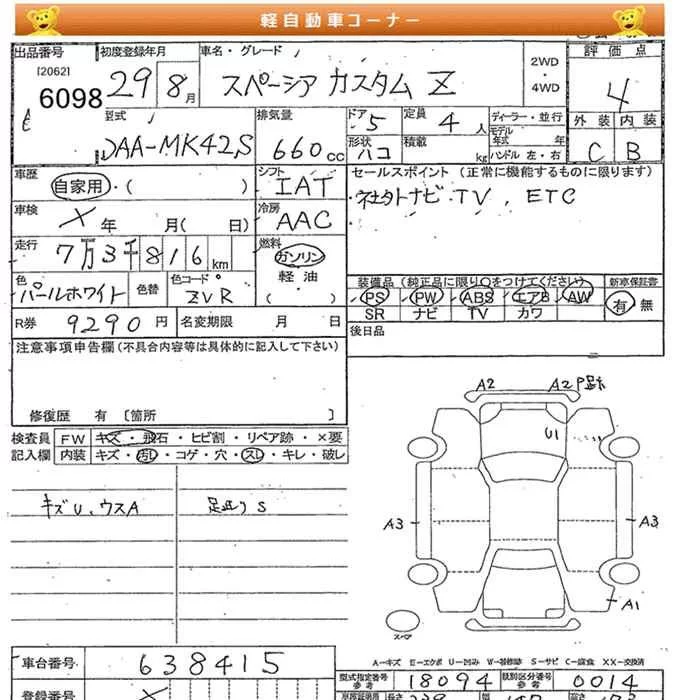 軽自動車コーナー
出品番号 初度登録年月 車名・グレード 評価点
[2062]
6098 29 8月 スペーシア カスタム Z 2WD・4WD 4
型式 排気量 ドア 定員 ディーラー・並行 外装 内装
DAA-MK42S 660cc 5 4人 モデル年式 年 C B
形状 ハコ 積載 kg ハンドル 左・右
車歴 シフト セールスポイント (正常に機能するものに限ります)
自家用・( ) IAT 社外ナビ TV, ETC
車検 冷房
×年 月( 日) AAC
走行 燃料
7万3千816km ガソリン
軽油
( )
色 色替 色コード 装備品 (純正品に限り○をつけてください) 新車保証書
パールホワイト ZVR PS PW ABS エアB AW 有 無
SR ナビ TV カワ
R券 9290円 名変期限 月 日 後日品
注意事項申告欄(不具合内容等は具体的に記入して下さい)
修復歴 有 [箇所 ]
検査員 FW キズ・飛石・ヒビ割・リペア跡・×要
記入欄 内装 キズ・汚レ・コゲ・穴・スレ・キレ・破レ
キズU、ウスA
A2 A2
U1
A3 A3
A1
スペア
A-キズ E-エクボ U-凹み W-補修跡 S-サビ C-腐食 XX-交換済
車台番号 638415
型式指定番号 参考 18094 類別区分番号 参考 0014
登録番号